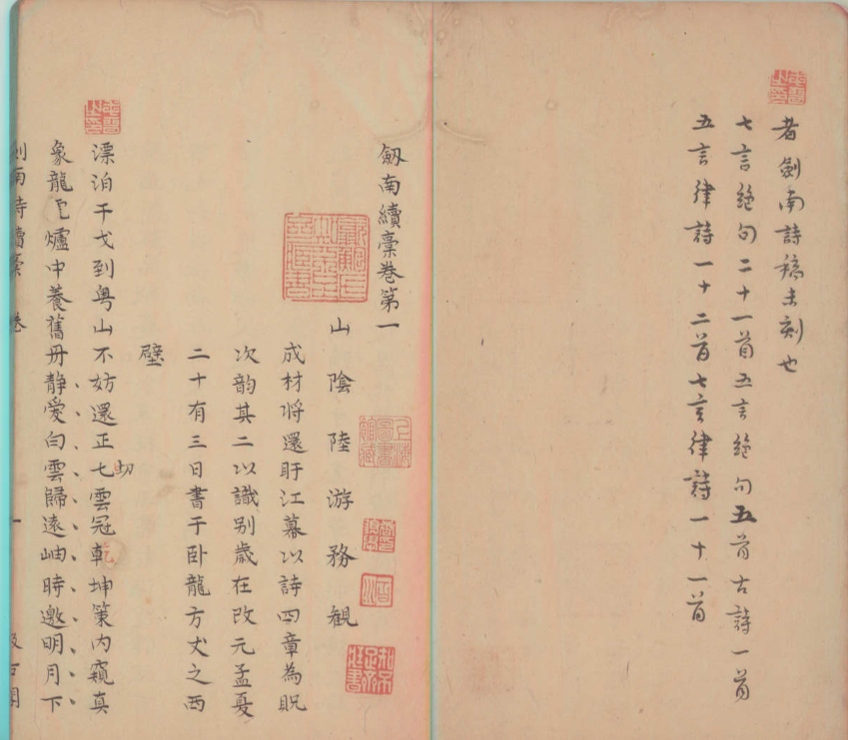 者劍南詩稿未刻也
七言絶句二十一首五言絶句五首古詩一首
五言律詩一十二首七言律詩一十一首
劔南續稾卷第一
山陰陸游務觀
成材將還盱江幕以詩四章為貺
次韵其二以識别歲在改元孟夏
二十有三日書于卧龍方丈之西
壁
漂泊干戈到粤山不妨還正七雲冠乾坤策内窺真
切
象龍虎爐中養舊丹静愛白雲歸遠岫時邀明月下
劍南詩續稾 卷 一 汲古閣